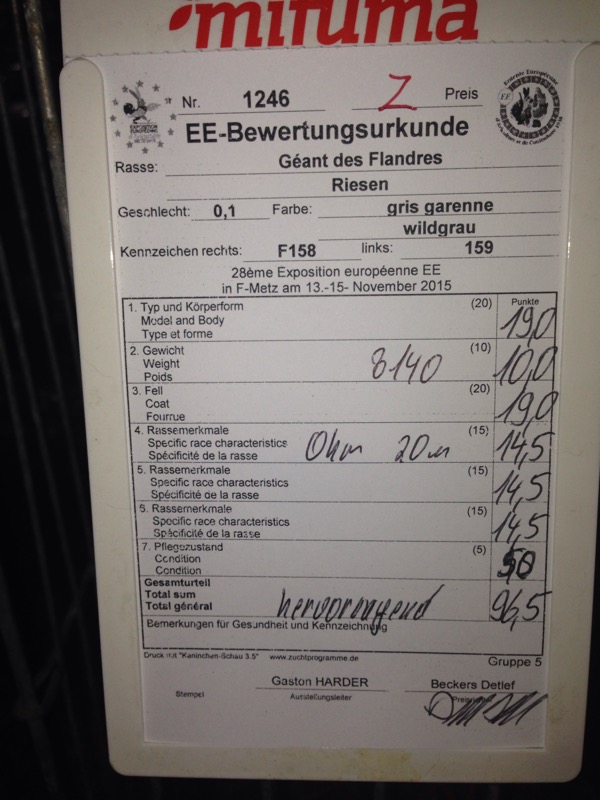 mifuma
Nr. 1246 Z Preis
EE-Bewertungsurkunde
Rasse: Géant des Flandres
Riesen
Geschlecht: 0,1 Farbe: gris garenne
wildgrau
Kennzeichen rechts: F158 links: 159
28ème Exposition européenne EE
in F-Metz am 13.-15- November 2015
1. Typ und Körperform (20) Punkte
Model and Body
Type et forme 19,0
2. Gewicht (10)
Weight 8140 10,0
Poids
3. Fell (20)
Coat 19,0
Fourrue
4. Rassemerkmale (15)
Specific race characteristics Ohren 20 cm 14,5
Spécificité de la rasse
5. Rassemerkmale (15)
Specific race characteristics 14,5
Spécificité de la rasse
6. Rassemerkmale (15)
Specific race characteristics 14,5
Spécificité de la rasse
7. Pflegezustand (5)
Condition
Condition
Gesamturteil
Total sum
Total général hervorragend 96,5
Bemerkungen für Gesundheit und Kennzeichnung
Druck mit "Kaninchen-Schau 3.5" www.zuchtprogramme.de
Gruppe 5
Gaston HARDER Beckers Detlef
Stempel Ausstellungsleiter Preisrichter